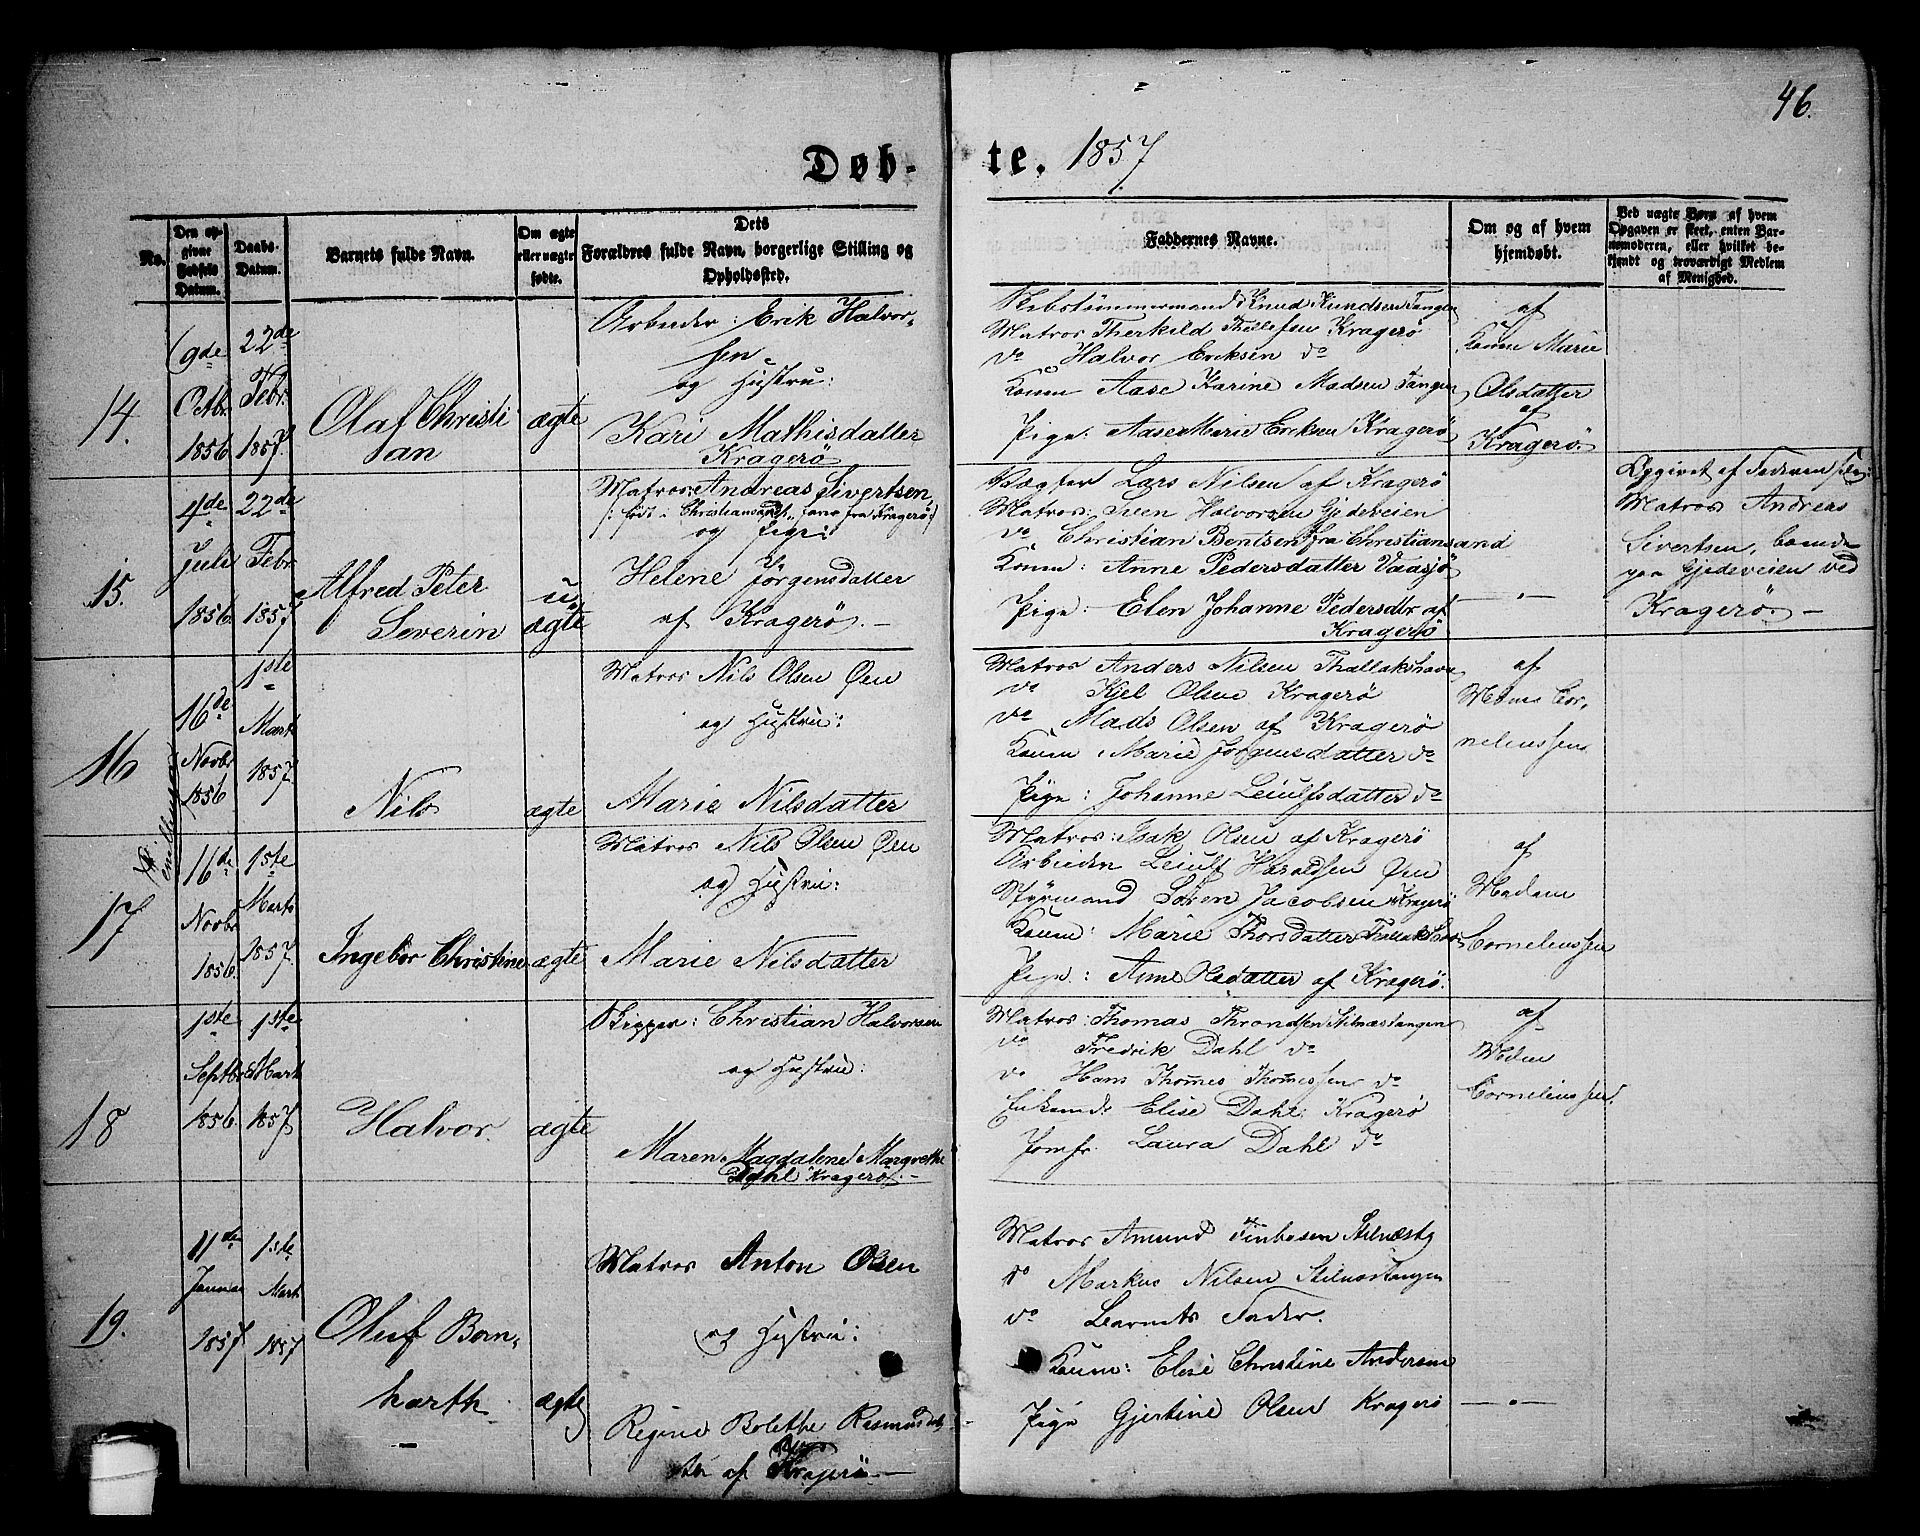 46.
Døb-te. 1857
No.
Den op-
givne
Fødsels
Datum.
Daabs-
Datum.
Barnets fulde Navn.
Om ægte
eller uægte
fødte.
Dets
Forældres fulde Navn, borgerlige Stilling og
Opholdssted.
Faddernes Navne.
Om og af hvem
hjemdøbt.
Ved uægte Børn af hvem
Opgaven er skeet, enten Bar-
nemoderen, eller hvilket be-
kjendt og troværdigt Medlem
af Menighed.
14.
9de
Octbr
1856
22de
Febr.
1857.
Olaf Christi
an
ægte
Arbeider: Erik Halvor-
sen
og Hustru:
Kari Mathisdatter
Kragerø
Skibstømmermand Knud Knudsen Tangen
Matros Therkild Thollefsen Kragerø
do Halvor Ericksen do
Konen Aase Karine Madsen Tangen
Pige: Aase Marie Ericksen Kragerø
af
Konen Marie
Olsdatter
af
Kragerø.
15.
4de
Juli
1856.
22de
Febr
1857
Alfred Peter
Severin
u
ægte
Matros: Andreas Sivertsen,
/: født i Christiansand, fra Kragerø:/
og Pige:
Helene Jørgensdatter
af Kragerø.-
Vægter Lars Nilsen af Kragerø
Matros: Sven Halvorsen Gjedeveien
do Christian Bentsen fra Christiansand
Konen: Anne Pedersdatter Vaasjø
Pige: Elen Johanne Pedersdtr af
Kragerø
—"—
Opgivet af Faderen selv:
Matros Andreas
Sivertsen, boende
paa Gjedeveien ved
Kragerø. -
16
16de
Novbr
1856
1ste
Marts
1857.
Nils
ægte
Matros Nils Olsen Øen
og Hustru:
Marie Nilsdatter
Matros Anders Nilsen Thallakshavn
do Kjel Olsen Kragerø
do Mads Olsen af Kragerø
Konen Marie Jørgensdatter do
Pige: Johanne Leiulfsdatter do
af
Madme Cor-
neliussen
Tvillinger
17
16de
Novbr
1856.
1ste
Marts
1857.
Ingebor Christine
ægte
Matros Nils Olsen Øen
og Hustru:
Marie Nilsdatter
Matros: Isak Olsen af Kragerø
Arbeider Leiulf Haraldsen Øen
Styrmand Søren Jacobsen Kragerø
Konen: Marie Thorsdatter
Pige: Anne Olsdatter af Kragerø.
af
Madam
Corneliussen
18
1ste
Septbr
1856.
1ste
Marts
1857
Halvor.
ægte
Skipper: Christian Halvorsen
og Hustru:
Maren Magdalene Margrethe
Dahl Kragerø.-
Matros: Thomas Throndsen Stilnæstangen
do Fredrik Dahl do
do Hans Thomes Thomessen do
Enkemd: Elise Dahl: Kragerø
Jomfr. Laura Dahl do
af
Madm
Corneliussen.
19.
11de
Januar
1857
1ste
Marts
1857
Oluf Born-
harth
ægte
Matros Anton Olsen
og Hustru:
Regine Bolethe Rasmusdat-
ter af Kragerø —
Matros Amund Finbosen Stilnæstg
do Markus Nilsen Stilnæstangen
do Barnets Fader.
Konen: Elise Christine Andersen
Pige Gjertine Olsen Kragerø
—"—